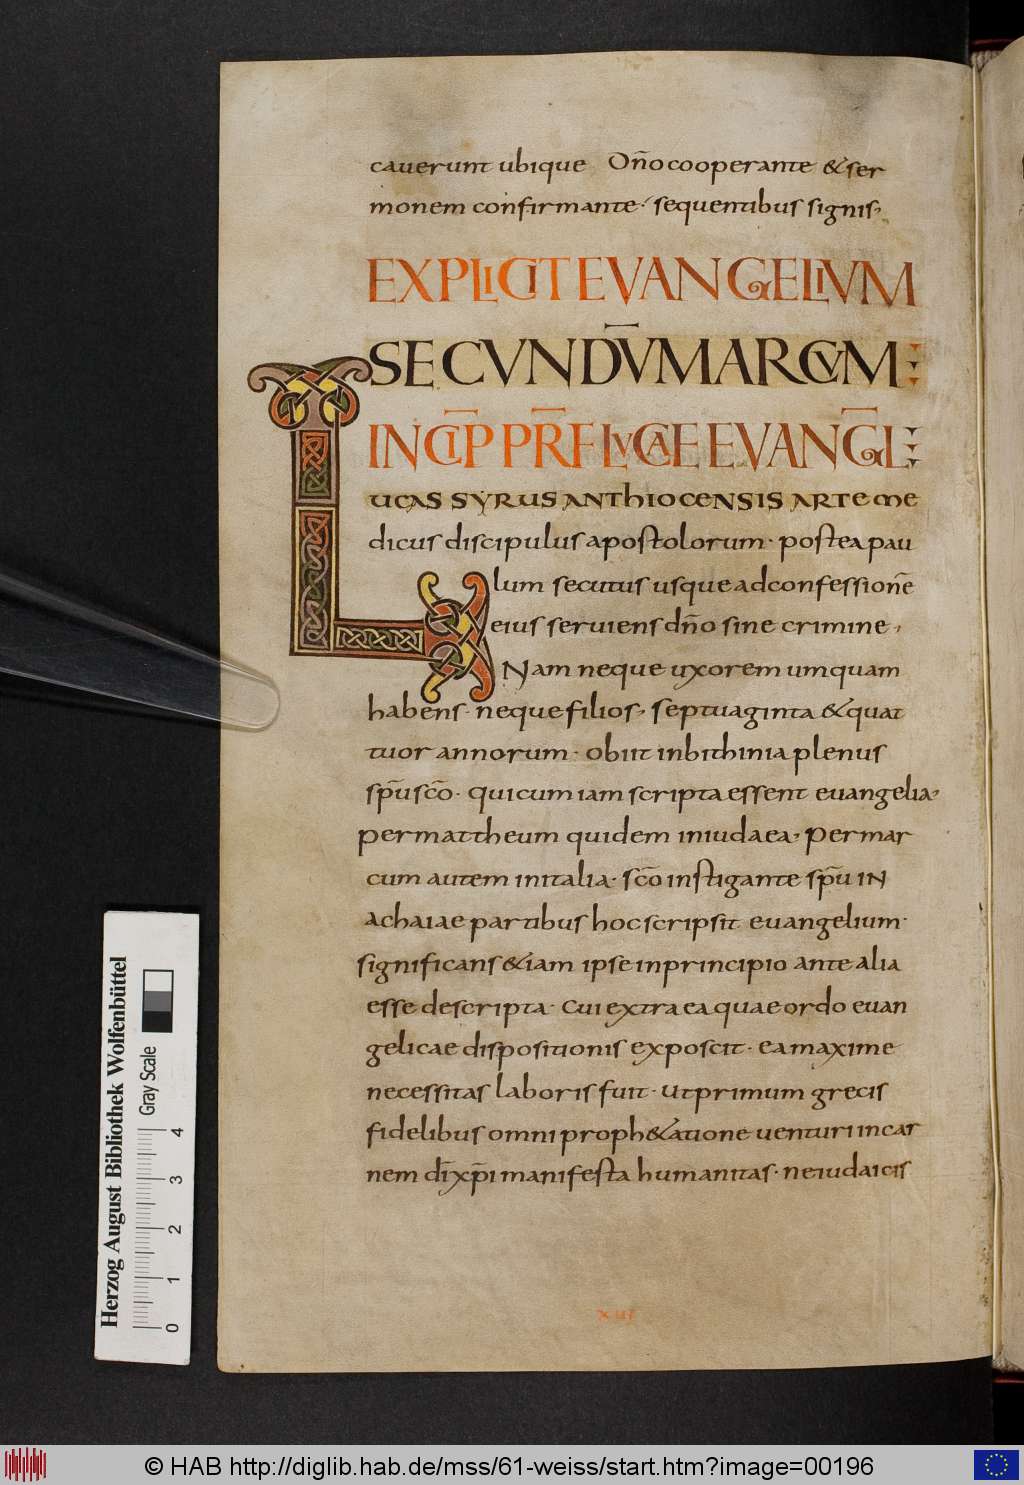 cauerunt ubique Dño cooperante & ser
monem confirmante· sequentibus signis,
EXPLICIT EVANGELIVM
SECVNDV̄ MARCVM
INCIP̄ PR̄F LVCAE EVANGL̄
LUCAS SYRUS ANTHIOCENSIS ARTE ME
dicus discipulus apostolorum· postea pau
lum secutus usque ad confessionē
eius seruiens dño sine crimine,
Nam neque uxorem umquam
habens· neque filios, septuaginta & quat
tuor annorum· obiit in bithinia plenus
sp̄u sc̄o· qui cum iam scripta essent euangelia,
per mattheum quidem in iudaea, per mar
cum autem in italia· sc̄o instigante sp̄u IN
achaiae partibus hoc scripsit euangelium·
significans &iam ipse in principio ante alia
esse descripta· Cui extra ea quae ordo euan
gelicae dispositionis exposcit· ea maxime
necessitas laboris fuit· Ut primum grecis
fidelibus omni proph&atione uenturi in car
nem dī xp̄i manifesta humanitas· ne iudaicis
XIII
Herzog August Bibliothek Wolfenbüttel
Gray Scale
0 1 2 3 4
© HAB http://diglib.hab.de/mss/61-weiss/start.htm?image=00196